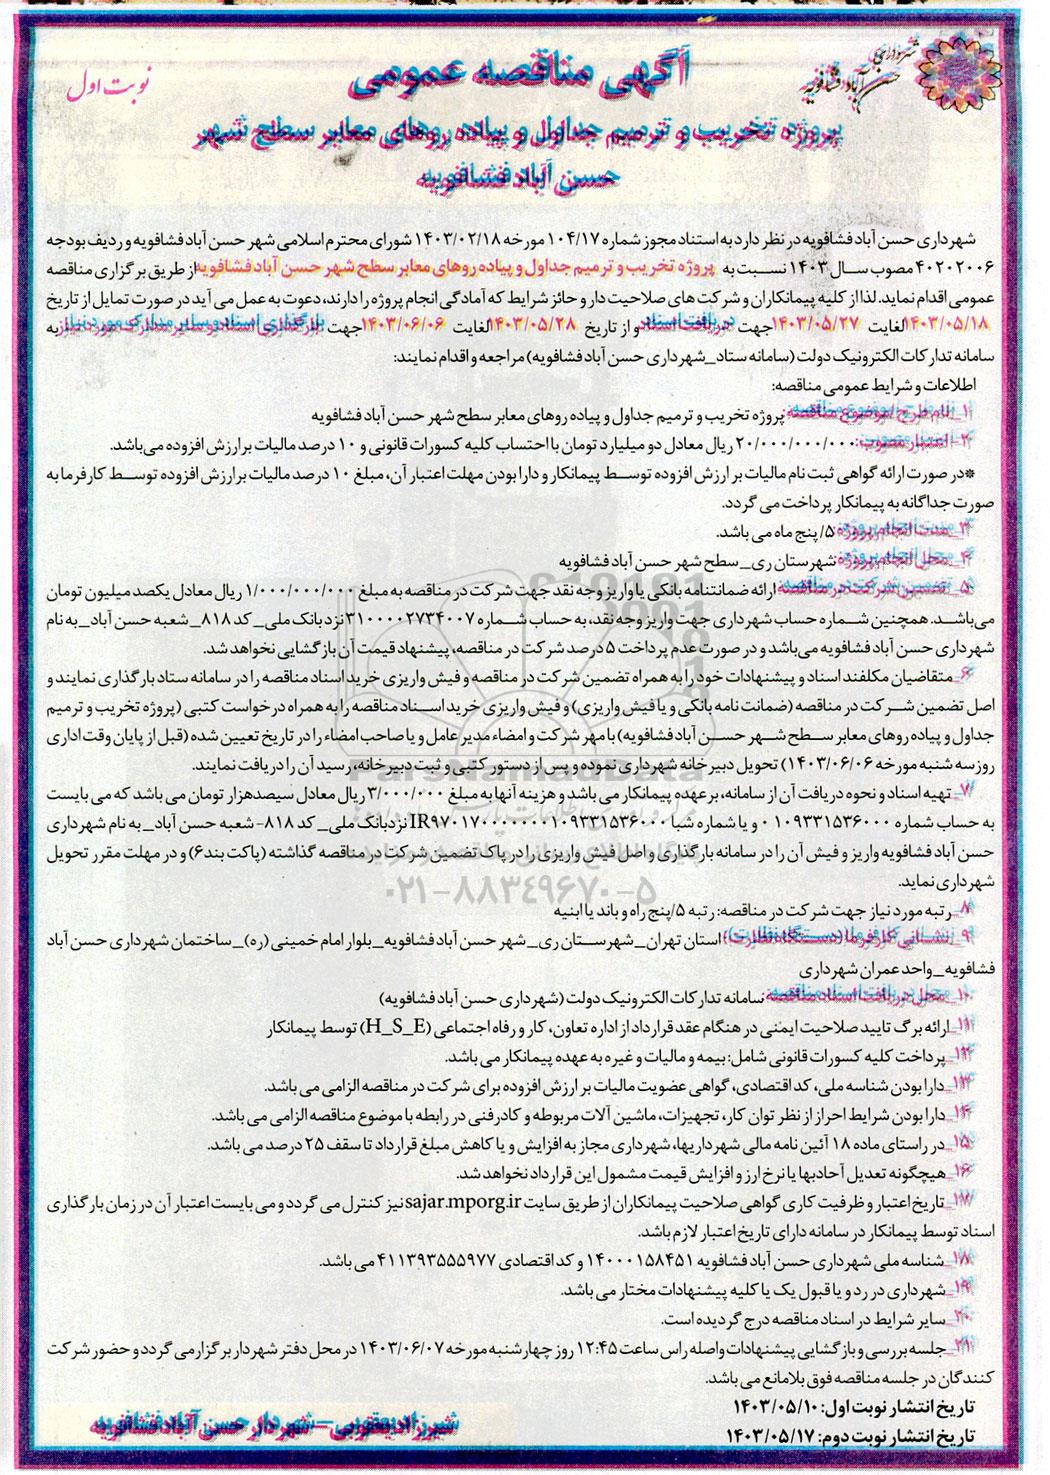 شهرداری
حسن آباد فشافویه
نوبت اول
آگهی مناقصه عمومی
پروژه تخریب و ترمیم جداول و پیاده روهای معابر سطح شهر
حسن آباد فشافویه
شهرداری حسن آباد فشافویه در نظر دارد به استناد مجوز شماره ۱۰۴/۱۷ مورخه ۱۴۰۳/۰۲/۱۸ شورای محترم اسلامی شهر حسن آباد فشافویه و ردیف بودجه
۴۰۲۰۲۰۰۶ مصوب سال ۱۴۰۳ نسبت به پروژه تخریب و ترمیم جداول و پیاده روهای معابر سطح شهر حسن آباد فشافویه از طریق برگزاری مناقصه
عمومی اقدام نماید. لذا از کلیه پیمانکاران و شرکت های صلاحیت دار و حائز شرایط که آمادگی انجام پروژه را دارند، دعوت به عمل می آید در صورت تمایل از تاریخ
۱۴۰۳/۰۵/۱۸ لغایت ۱۴۰۳/۰۵/۲۷ جهت دریافت اسناد و از تاریخ ۱۴۰۳/۰۵/۲۸ لغایت ۱۴۰۳/۰۶/۰۶ جهت بارگذاری اسناد و سایر مدارک مورد نیاز به
سامانه تدارکات الکترونیک دولت (سامانه ستاد_شهرداری حسن آباد فشافویه) مراجعه و اقدام نمایند:
اطلاعات و شرایط عمومی مناقصه:
۱_نام طرح/موضوع مناقصه: پروژه تخریب و ترمیم جداول و پیاده روهای معابر سطح شهر حسن آباد فشافویه
۲- اعتبار مصوب: ۲۰/۰۰۰/۰۰۰/۰۰۰ ریال معادل دو میلیارد تومان با احتساب کلیه کسورات قانونی و ۱۰ درصد مالیات برارزش افزوده می‌باشد.
*در صورت ارائه گواهی ثبت نام مالیات بر ارزش افزوده توسط پیمانکار و دارا بودن مهلت اعتبار آن، مبلغ ۱۰ درصد مالیات برارزش افزوده توسط کارفرما به
صورت جداگانه به پیمانکار پرداخت می گردد.
۳_مدت انجام پروژه: ۵/ پنج ماه می باشد.
۴_محل انجام پروژه: شهرستان ری_سطح شهر حسن آباد فشافویه
۵_تضمین شرکت در مناقصه: ارائه ضمانتنامه بانکی یا واریز وجه نقد جهت شرکت در مناقصه به مبلغ ۱/۰۰۰/۰۰۰/۰۰۰ ریال معادل یکصد میلیون تومان
می‌باشد. همچنین شماره حساب شهرداری جهت واریز وجه نقد، به حساب شماره ۳۱۰۰۰۰۲۷۳۴۰۰۷ نزد بانک ملی_ کد ۸۱۸_شعبه حسن آباد_به نام
شهرداری حسن آباد فشافویه می‌باشد و در صورت عدم پرداخت ۵ درصد شرکت در مناقصه، پیشنهاد قیمت آن بازگشایی نخواهد شد.
۶_متقاضیان مکلفند اسناد و پیشنهادات خود را به همراه تضمین شرکت در مناقصه و فیش واریزی خرید اسناد مناقصه را در سامانه ستاد بارگذاری نمایند و
اصل تضمین شرکت در مناقصه (ضمانت نامه بانکی و یا فیش واریزی) و فیش واریزی خرید اسناد مناقصه را به همراه درخواست کتبی (پروژه تخریب و ترمیم
جداول و پیاده روهای معابر سطح شهر حسن آباد فشافویه) با مهر شرکت و امضاء مدیر عامل و یا صاحب امضاء را در تاریخ تعیین شده (قبل از پایان وقت اداری
روز سه شنبه مورخه ۱۴۰۳/۰۶/۰۶) تحویل دبیرخانه شهرداری نموده و پس از دستور کتبی و ثبت دبیرخانه، رسید آن را دریافت نمایند.
۷_ تهیه اسناد و نحوه دریافت آن از سامانه، برعهده پیمانکار می باشد و هزینه آنها به مبلغ ۳/۰۰۰/۰۰۰ ریال معادل سیصدهزار تومان می باشد که می بایست
به حساب شماره ۰۱۰۹۳۳۱۵۳۶۰۰۰ و یا شماره شبا IR۹۷۰۱۷۰۰۰۰۰۰۰۱۰۹۳۳۱۵۳۶۰۰۰ نزد بانک ملی_ کد ۸۱۸- شعبه حسن آباد_به نام شهرداری
حسن آباد فشافویه واریز و فیش آن را در سامانه بارگذاری و اصل فیش واریزی را در پاک تضمین شرکت در مناقصه گذاشته (پاکت بند۶) و در مهلت مقرر تحویل
شهرداری نماید.
۸_رتبه مورد نیاز جهت شرکت در مناقصه: رتبه ۵/پنج راه و باند یا ابنیه
۹_نشانی کارفرما (دستگاه نظارت): استان تهران_شهرستان ری_شهر حسن آباد فشافویه_بلوار امام خمینی (ره)_ساختمان شهرداری حسن آباد
فشافویه_واحد عمران شهرداری
۱۰_محل دریافت اسناد مناقصه: سامانه تدارکات الکترونیک دولت (شهرداری حسن آباد فشافویه)
۱۱_ارائه برگ تایید صلاحیت ایمنی در هنگام عقد قرارداد از اداره تعاون، کار و رفاه اجتماعی (H_S_E) توسط پیمانکار
۱۲_پرداخت کلیه کسورات قانونی شامل: بیمه و مالیات و غیره به عهده پیمانکار می باشد.
۱۳_دارا بودن شناسه ملی، کد اقتصادی، گواهی عضویت مالیات بر ارزش افزوده برای شرکت در مناقصه الزامی می باشد.
۱۴_دارا بودن شرایط احراز از نظر توان کار، تجهیزات، ماشین آلات مربوطه و کادرفنی در رابطه با موضوع مناقصه الزامی می باشد.
۱۵_در راستای ماده ۱۸ آئین نامه مالی شهرداریها، شهرداری مجاز به افزایش و یا کاهش مبلغ قرارداد تا سقف ۲۵ درصد می باشد.
۱۶_هیچگونه تعدیل آحادبها یا نرخ ارز و افزایش قیمت مشمول این قرارداد نخواهد شد.
۱۷_تاریخ اعتبار و ظرفیت کاری گواهی صلاحیت پیمانکاران از طریق سایت sajar.mporg.ir نیز کنترل می گردد و می بایست اعتبار آن در زمان بارگذاری
اسناد توسط پیمانکار در سامانه دارای تاریخ اعتبار لازم باشد.
۱۸_شناسه ملی شهرداری حسن آباد فشافویه ۱۴۰۰۰۱۵۸۴۵۱ و کد اقتصادی ۴۱۱۳۹۳۵۵۵۹۷۷ می باشد.
۱۹_شهرداری در رد و یا قبول یک یا کلیه پیشنهادات مختار می باشد.
۲۰_سایر شرایط در اسناد مناقصه درج گردیده است.
۲۱_جلسه بررسی و بازگشایی پیشنهادات واصله راس ساعت ۱۲:۴۵ روز چهارشنبه مورخه ۱۴۰۳/۰۶/۰۷ در محل دفتر شهردار برگزار می گردد و حضور شرکت
کنندگان در جلسه مناقصه فوق بلامانع می باشد.
تاریخ انتشار نوبت اول: ۱۴۰۳/۰۵/۱۰
تاریخ انتشار نوبت دوم: ۱۴۰۳/۰۵/۱۷
شیرزاد یعقوبی – شهردار حسن آباد فشافویه
ParsNamadData
۰۲۱-۸۸۳۴۹۶۷۰-۵